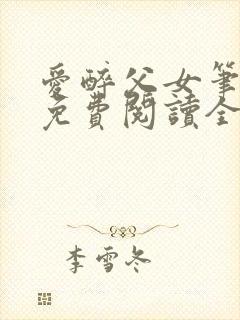 愛醉父女筆
免費閱讀全
李雪冬